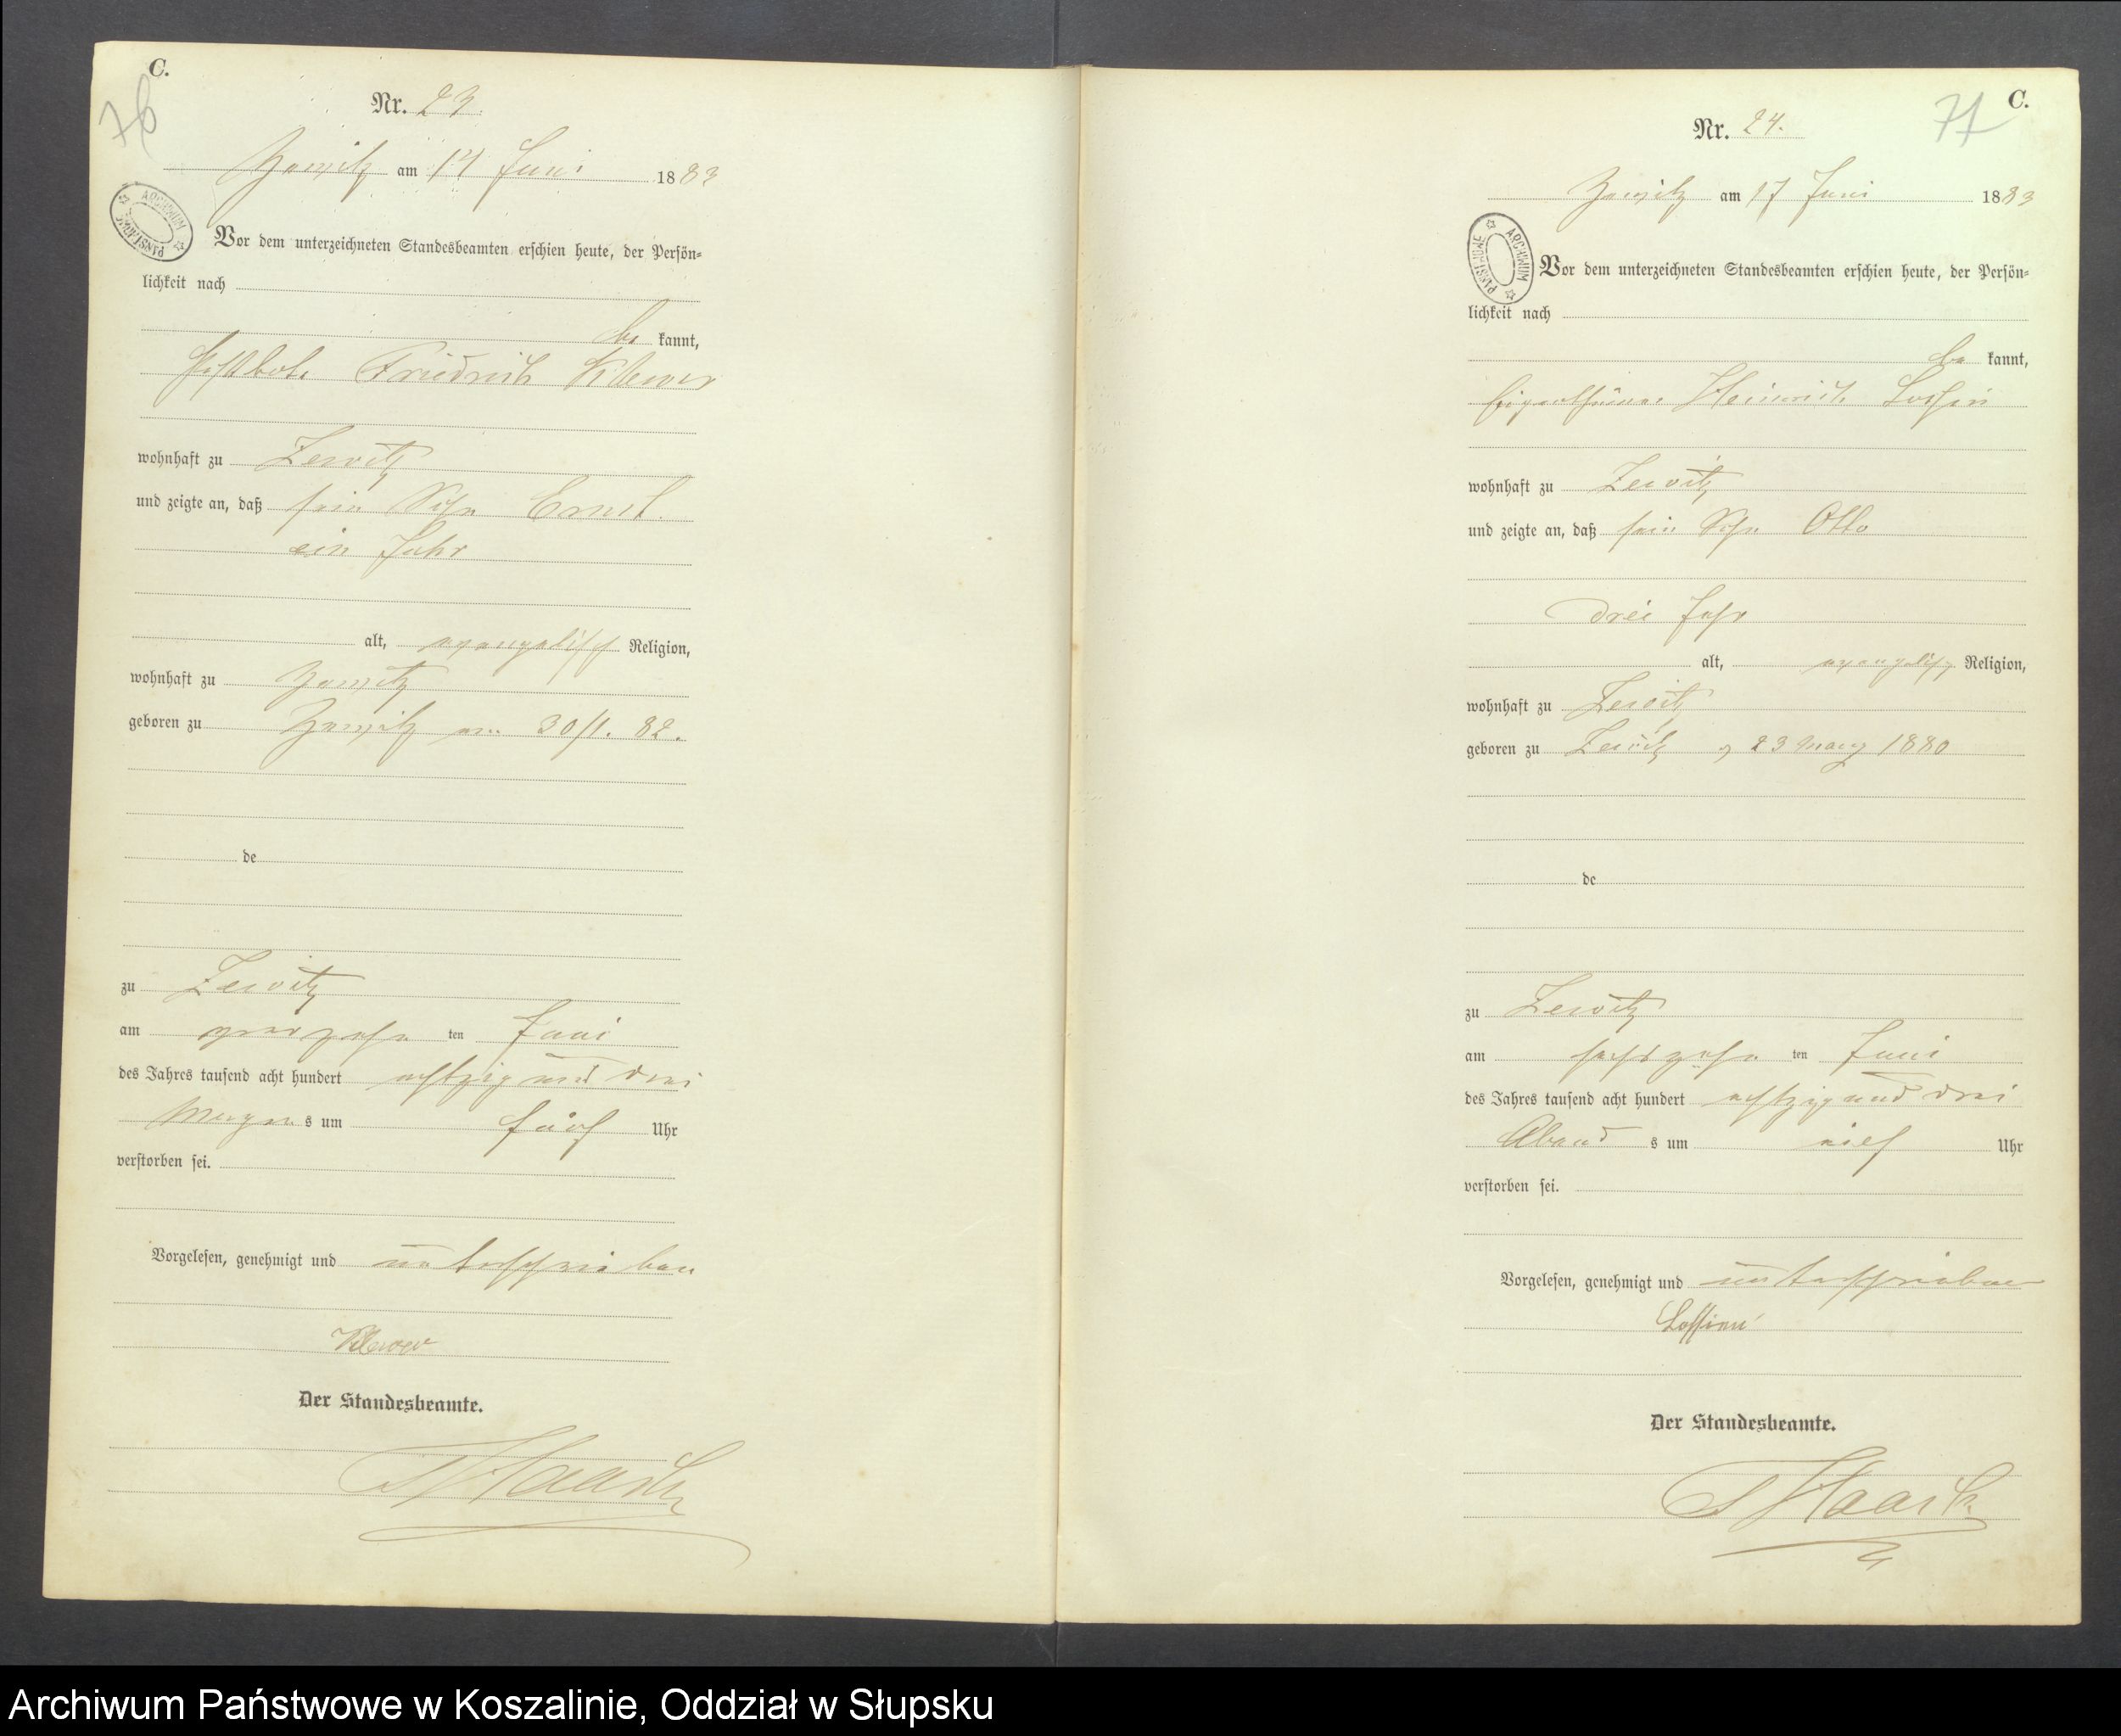 C.
76
Nr. 23.
Zewitz am 14 Juni 1883
ARCHIWUM PAŃSTWOWE
Vor dem unterzeichneten Standesbeamten erschien heute, der Persön=
lichkeit nach
be kannt,
Friedrich Klewer
wohnhaft zu Zewitz
und zeigte an, daß sein Sohn Ernst
ein Jahr
alt, evangelisch Religion,
wohnhaft zu Zewitz
geboren zu Zewitz am 30/1. 82.
de
zu Zewitz
am vierzehn ten Juni
des Jahres tausend acht hundert achtzig und drei
Morgen s um fünf Uhr
verstorben sei.
Vorgelesen, genehmigt und unterschrieben
Klewer
Der Standesbeamte.
Haask
C.
77
Nr. 24.
Zewitz am 17 Juni 1883
ARCHIWUM PAŃSTWOWE
Vor dem unterzeichneten Standesbeamten erschien heute, der Persön=
lichkeit nach
be kannt,
Eigenthümer Heinrich Lossin
wohnhaft zu Zewitz
und zeigte an, daß sein Sohn Otto
drei Jahr
alt, evangelisch Religion,
wohnhaft zu Zewitz
geboren zu Zewitz 23 Maerz 1880
de
zu Zewitz
am sechszehn ten Juni
des Jahres tausend acht hundert achtzig und drei
Abend s um elf Uhr
verstorben sei.
Vorgelesen, genehmigt und unterschrieben
Der Standesbeamte.
Haask
Archiwum Państwowe w Koszalinie, Oddział w Słupsku